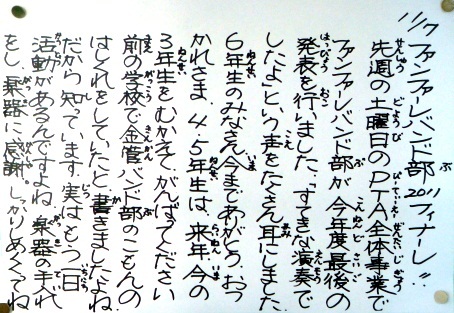 ファンファーレバンド部2011フィナーレ!!
先週の土曜日のPTA全体事業で
ファンファーレバンド部が今年度最後の
発表を行いました。「すてきな演奏で
したよ」という声をたくさん耳にしました。
6年生のみなさん、今までありがとう、おつ
かれさま。4.5年生は、来年、今の
3年生をむかえて、がんばってください
前の学校で金管バンド部のこもんの
はしくれをしていたと、書きましたよね。
だから知っています。実はもう一日
活動があるんですよね。楽器の手入れ
をし、楽器に感謝。しっかりめくくってね